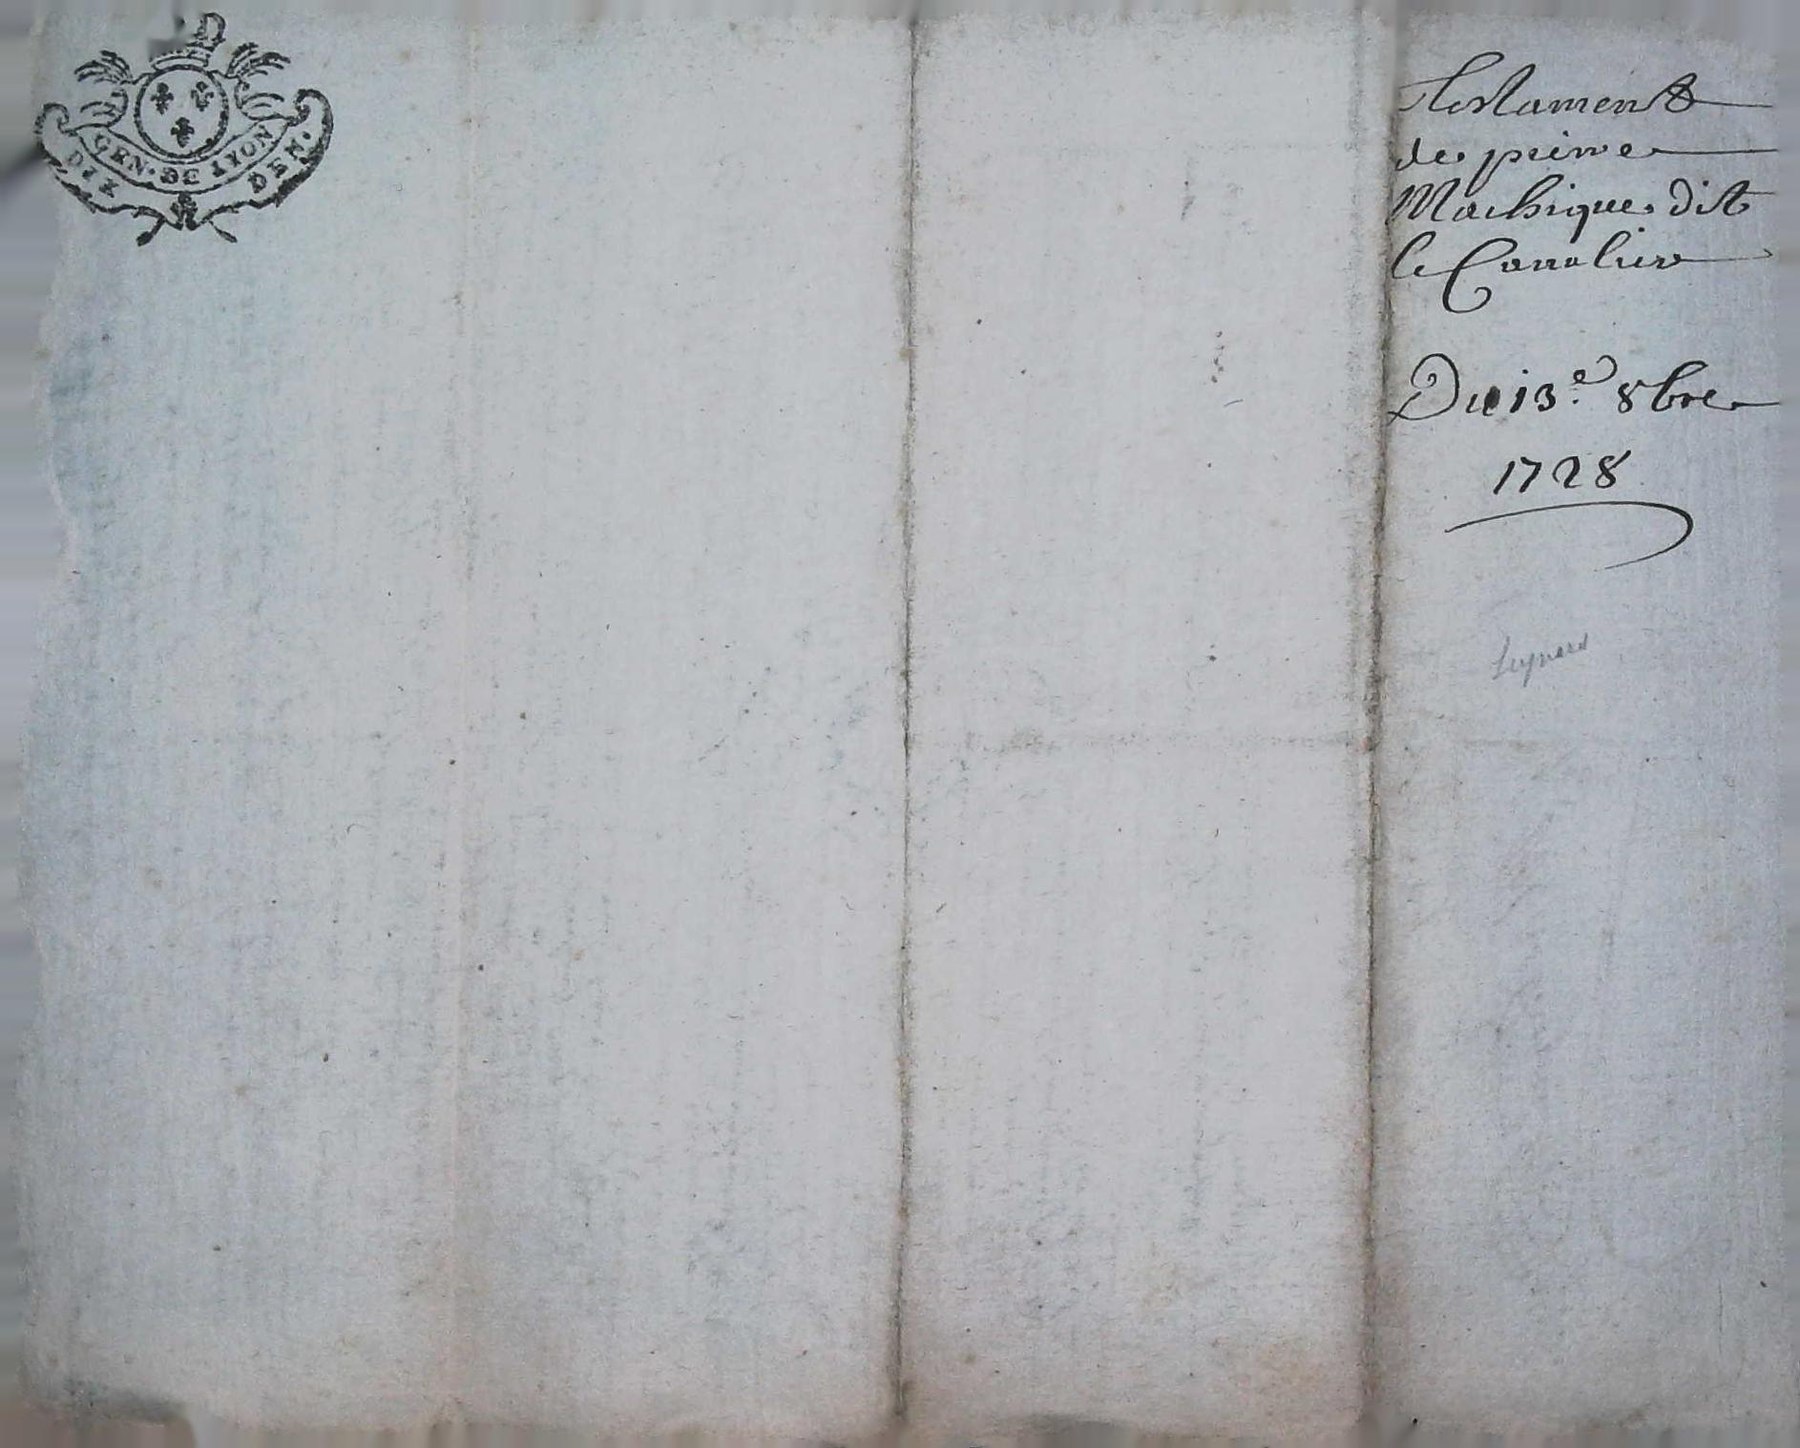 GEN. DE LYON
DIX DEN.
Testament
de pierre
Machique dit
le Cavalier
Du 13.e 8bre
1728